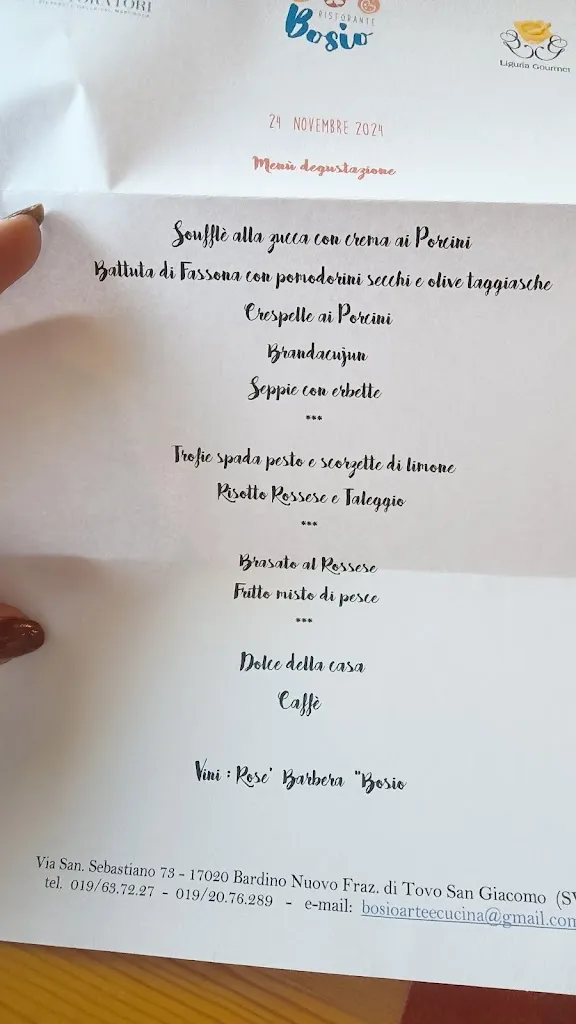 RISTORANTE
Bosio
Liguria Gourmet
24 NOVEMBRE 2024
Menù degustazione
Soufflè alla zucca con crema ai Porcini
Battuta di Fassona con pomodorini secchi e olive taggiasche
Crespelle ai Porcini
Brandacujun
Seppie con erbette
***
Trofie spada pesto e scorzette di limone
Risotto Rossese e Taleggio
***
Brasato al Rossese
Fritto misto di pesce
***
Dolce della casa
Caffè
Vini : Rose' Barbera "Bosio
Via San. Sebastiano 73 - 17020 Bardino Nuovo Fraz. di Tovo San Giacomo (SV
tel. 019/63.72.27 - 019/20.76.289 - e-mail: bosioarteecucina@gmail.com